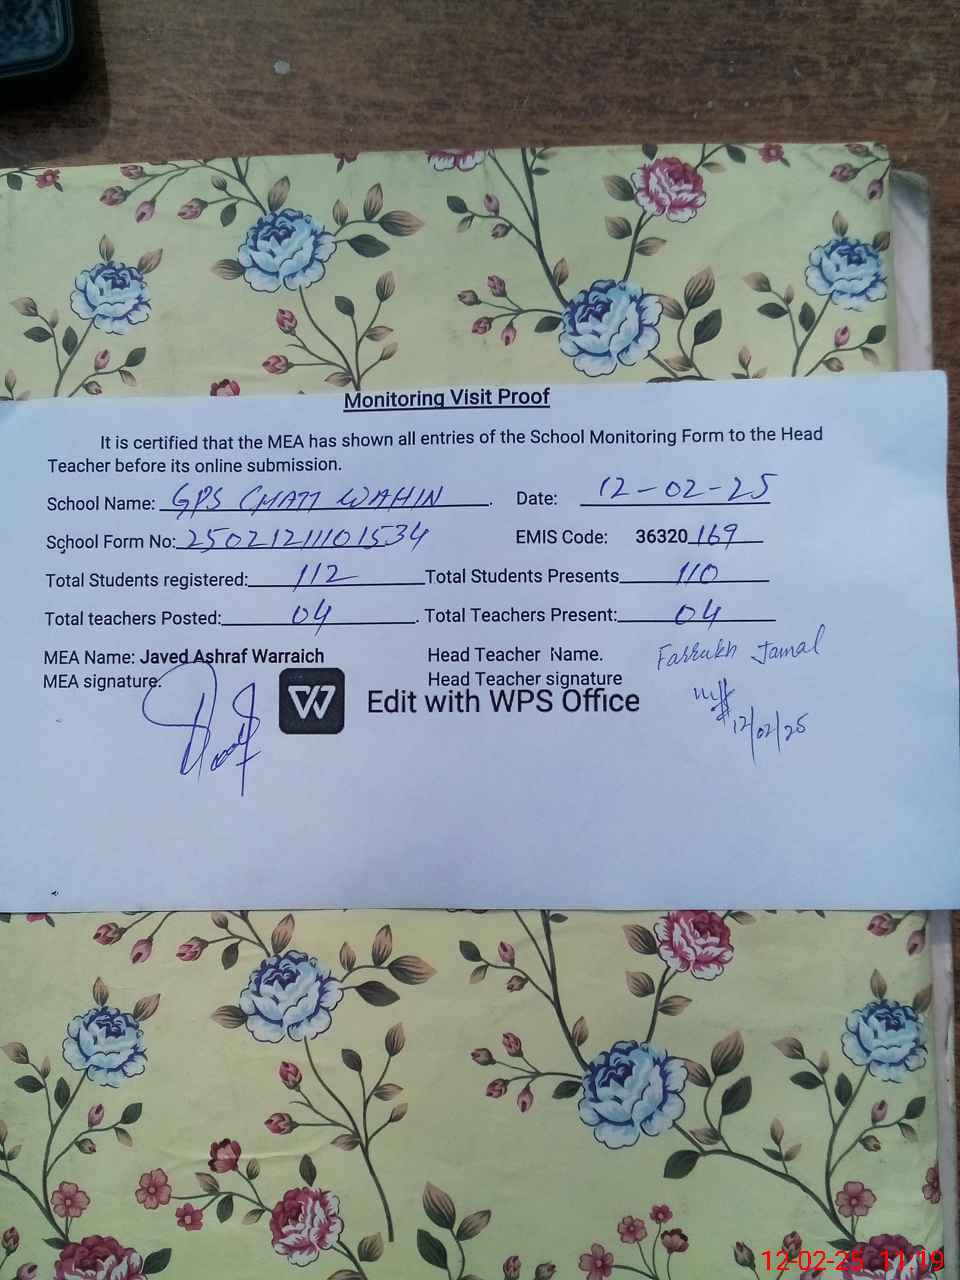 Monitoring Visit Proof
It is certified that the MEA has shown all entries of the School Monitoring Form to the Head
Teacher before its online submission.
School Name: GPS CHATT WAHIN. Date: 12-02-25
School Form No: 25021211101534 EMIS Code: 36320169
Total Students registered: 112 Total Students Presents 110
Total teachers Posted: 04. Total Teachers Present: 04
MEA Name: Javed Ashraf Warraich Head Teacher Name. Farrukh Jamal
MEA signature. Head Teacher signature
Edit with WPS Office
12/02/25
12-02-25 11:19